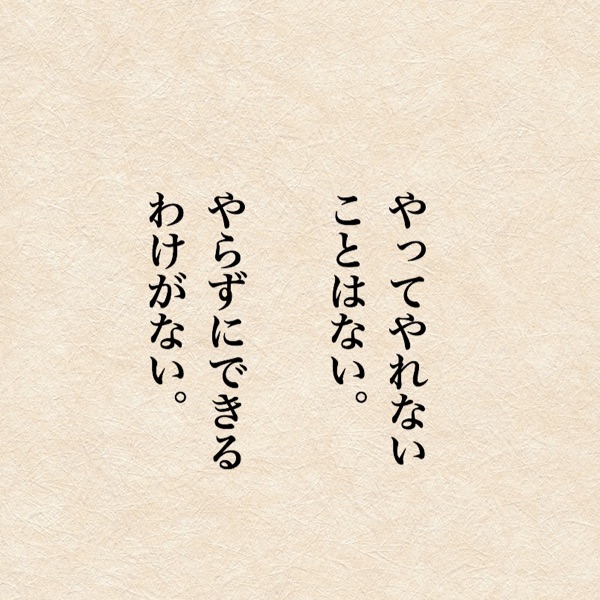 やってやれない
ことはない。
やらずにできる
わけがない。